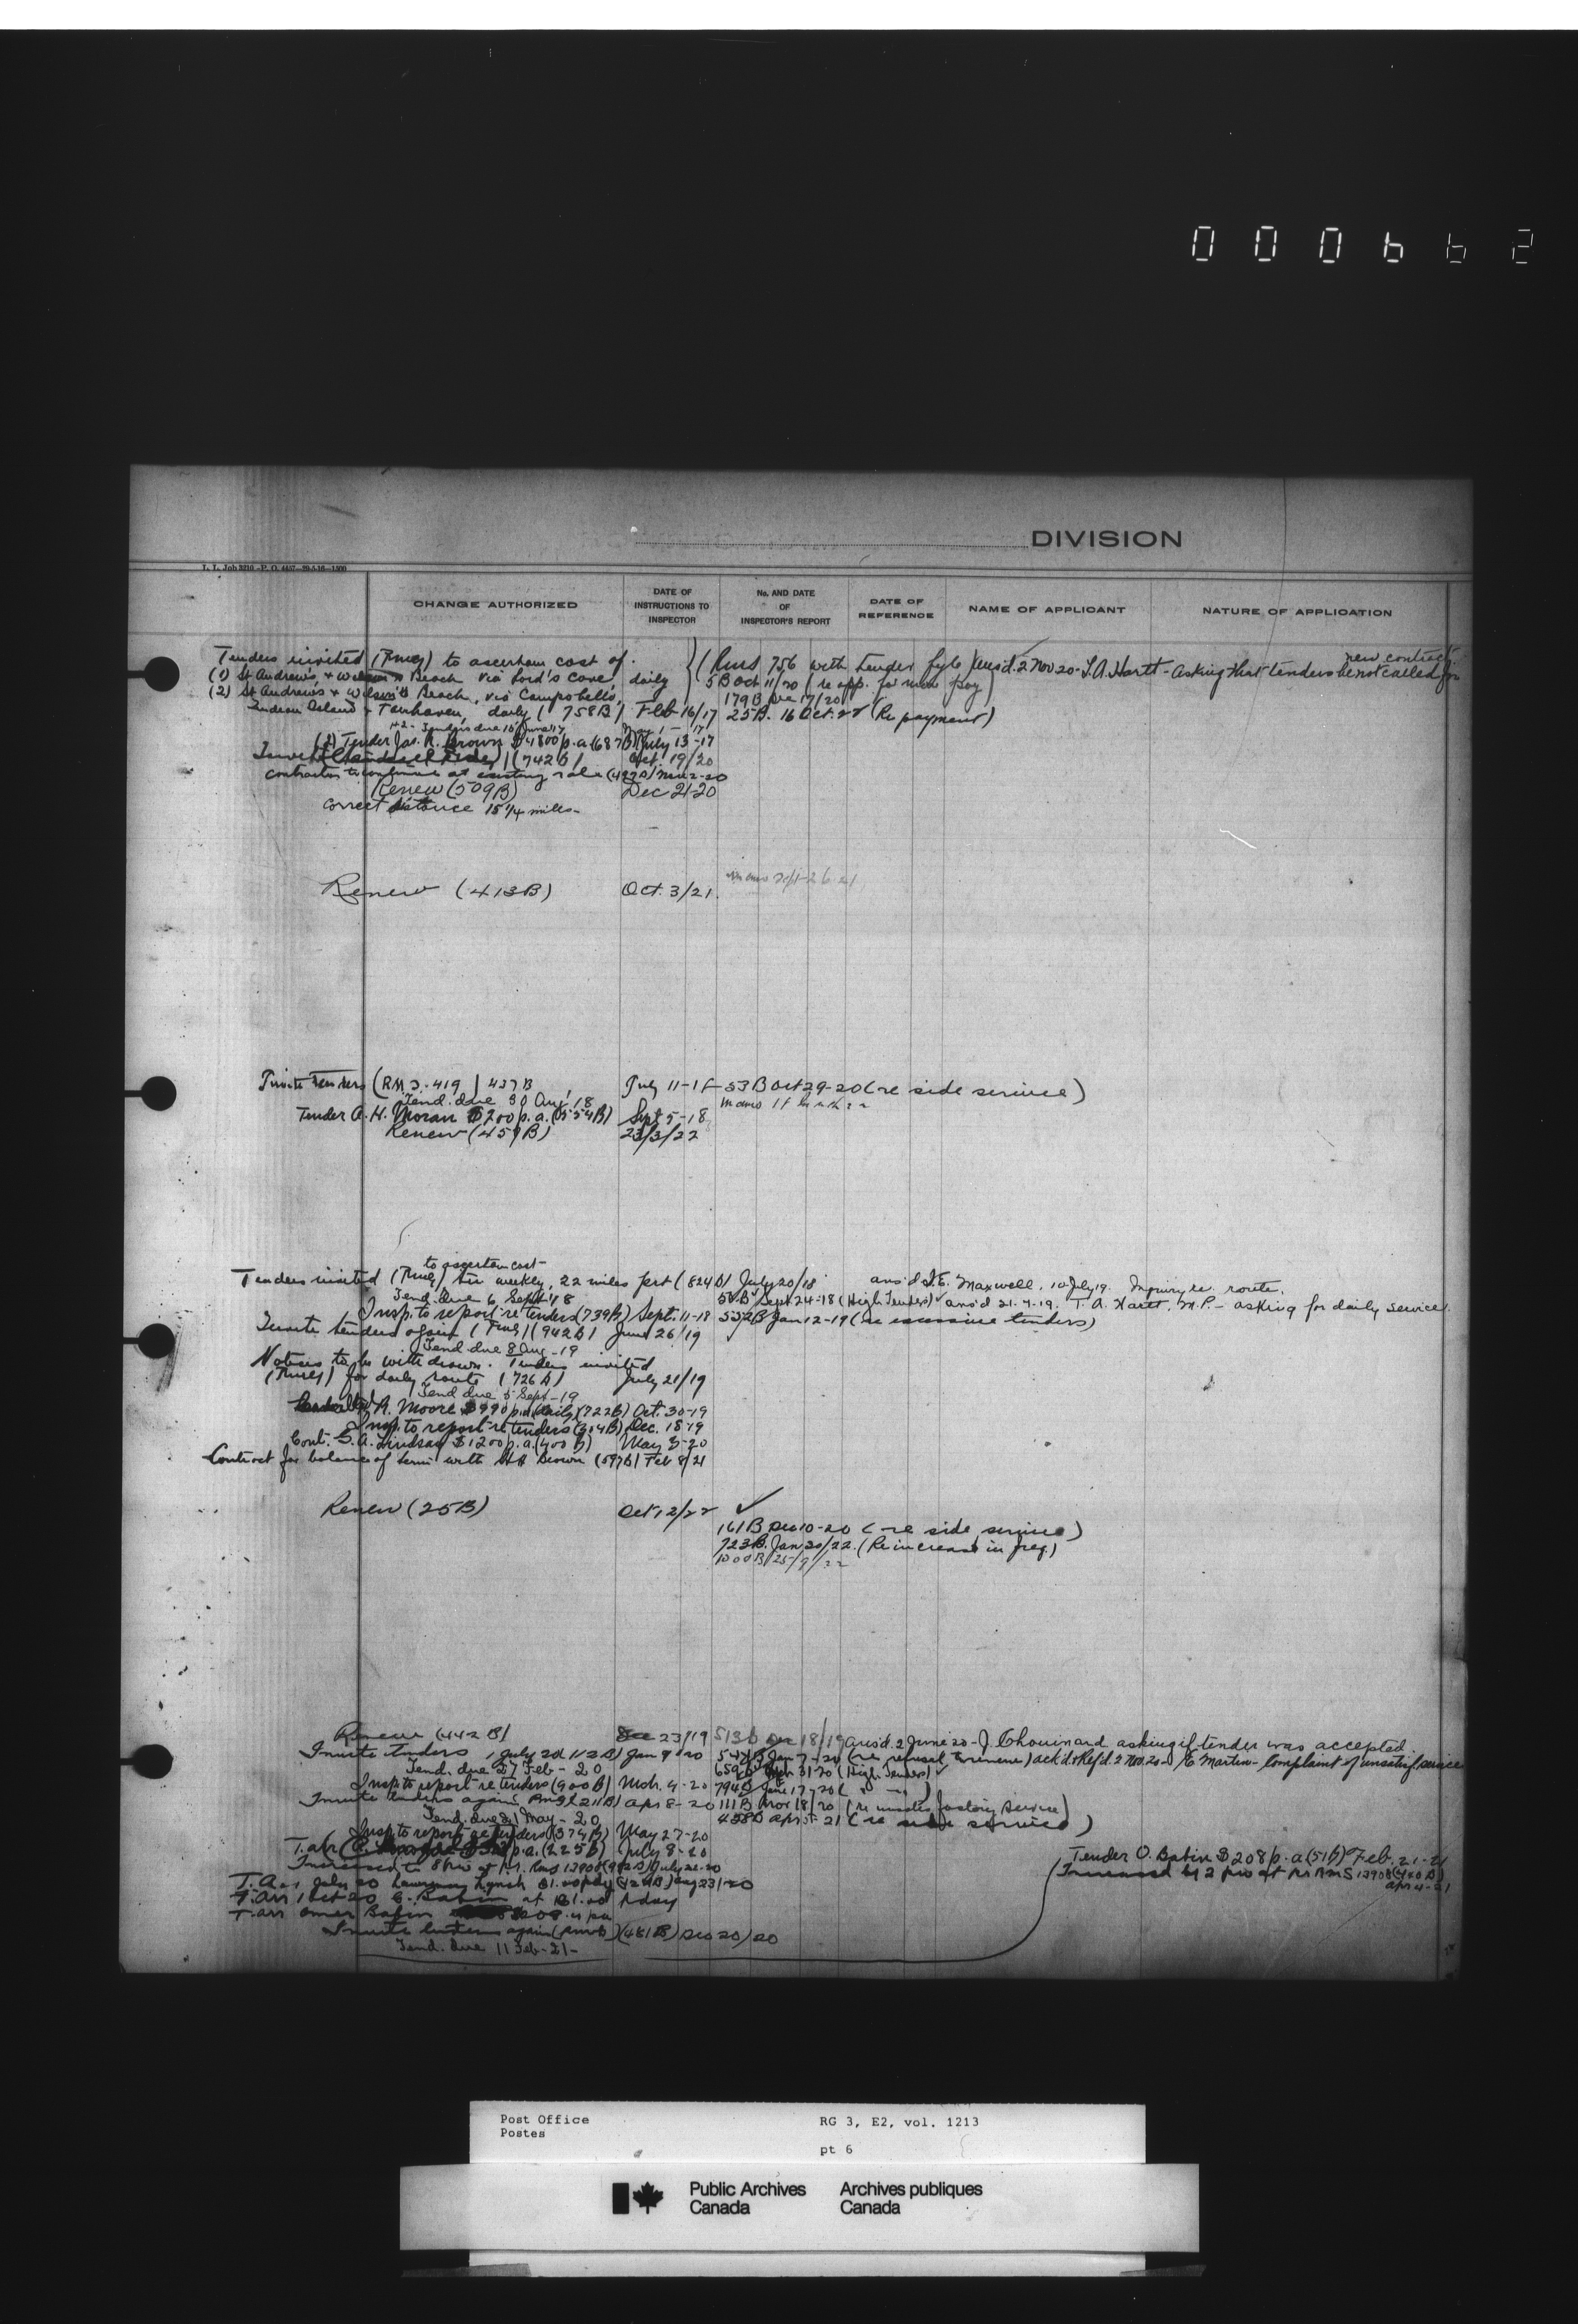 000662
DIVISION
L. L. Job 3210-P. O. 4457-29-5-16-1500
CHANGE AUTHORIZED
DATE OF INSTRUCTIONS TO INSPECTOR
No. AND DATE OF INSPECTOR'S REPORT
DATE OF REFERENCE
NAME OF APPLICANT
NATURE OF APPLICATION
Tenders invited (Rms) to ascertain cost of
(1) St Andrews, & Wilson's Beach via Lord's Cove, daily
(2) St Andrews & Wilson's Beach, via Campobello,
Indian Island & Fairhaven, daily (758B) Feb 16/17
Rms 756 with tender fyle
5B Oct 11/20 (re app. for more pay)
179B Dec 17/20
25B. 16 Oct. 22 (Re payment)
ansd. 2 Nov 20 - T.A. Hartt - Asking that tenders be not called for new contract
(2) Tender Jas. R. Brown $4800 p.a. (687B) July 13-17
(742B) Oct. 19/20
contractor to continue at existing rate
Renew (509B) Dec 21-20
Correct distance 15 1/4 miles-
Renew (413B) Oct. 3/21.
Sept 26 21
Invite Tenders (RMS-419) 437B July 11-18
53B Oct 29-20 (re side service)
Tend. due 30 Aug, 18
Tender A. H. Moran $200 p.a. (554B) Sept 5-18
Renew (459B) 23/3/22
to ascertain cost-
Tenders invited (Rms) tri weekly, 22 miles per t (824B) July 20/18
ans'd 10 July 19. Maxwell, Inquiry re route.
Tend. due 6 Sept 18
Sept 24-18 (High Tenders) ans'd 21-7-19. T. A. Hartt, M.P. - asking for daily service.
Insp. to report re tenders (739B) Sept. 11-18
532B Jan 12-19 (re excessive tenders)
Invite tenders again (Rms) (942B) June 26/19
Tend due 8 Aug-19
Notices to be withdrawn. Tenders invited
(Rms) for daily route (726B) July 21/19
Tend due 5 Sept-19
R. Moore $990 p.a. daily (722B) Oct. 30-19
Insp. to report re tenders (304B) Dec. 18-19
Cont. G. A. Lindsay $1200 p.a. (400B) May 3-20
Contract for balance of term with Brown (597B) Feb 8/21
Renew (25B) Oct 12/22
161B Dec 10-20 (-re side service)
723B. Jan 20/22. (Re increase in freq.)
1000B/25/9/22
Renew (442B) Dec 23/19
513B Dec 18/19
ansd. 2 June 20 - J. Chouinard asking if tender was accepted
Invite tenders 1 July 20 (112B) Jan 9-20
Jan 7-20 (re refusal to renew)
E Martin - Complaint of unsatisf service
Tend. due 27 Feb - 20
31-20 (High Tenders)
Insp to report re tenders (900B) Mch. 9-20
794B June 17-20
Invite tenders again (211B) Apr 8-20
111B Nov 18/20 (re unsatisfactory service)
Tend. due 21 May - 20
438B Apr 5-21 (re side service)
Insp to report re tenders (374B) May 27-20
p.a. (225B) July 8-20
Tender O. Babin $208 p.a. (51B) Feb. 21-21
Increased by 2 p w at p.r. RMS 13908 (440B) Apr 4-21
T. Arr July 20 Lawrence Lynch $1.00 pday (424B) Aug 23/-20
T. arr 1 Oct 20 E. Babin at $1.00 pday
T. arr Omer Babin
Invite tenders again (RMS) (481B) Dec 20/20
Tend. due 11 Feb-21-
Post Office
Postes
RG 3, E2, vol. 1213
pt 6
Public Archives Canada
Archives publiques Canada